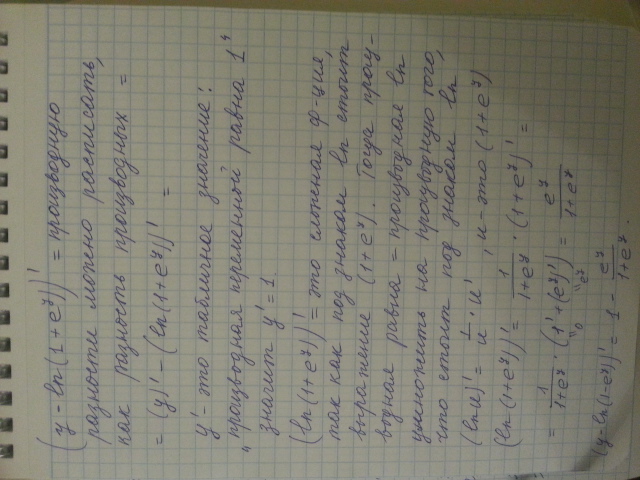 (y - ln(1+e^y))' = производную
разности можно расписать,
как разность производных =
= (y)' - (ln(1+e^y))' =
y' - это табличное значение:
"производная переменной равна 1"
значит y' = 1
(ln(1+e^y))' = это сложная ф-ция,
так как под знаком ln стоит
выражение (1+e^y). Тогда произ-
водная равна = производная ln
умножить на производную того,
что стоит под знаком ln
(ln u)' = 1/u · u' , u - это (1+e^y)
(ln(1+e^y))' = 1/(1+e^y) · (1+e^y)' =
= 1/(1+e^y) · (1' + (e^y)') = e^y/(1+e^y)
"0 "e^y
(y - ln(1-e^y))' = 1 - e^y/(1+e^y).